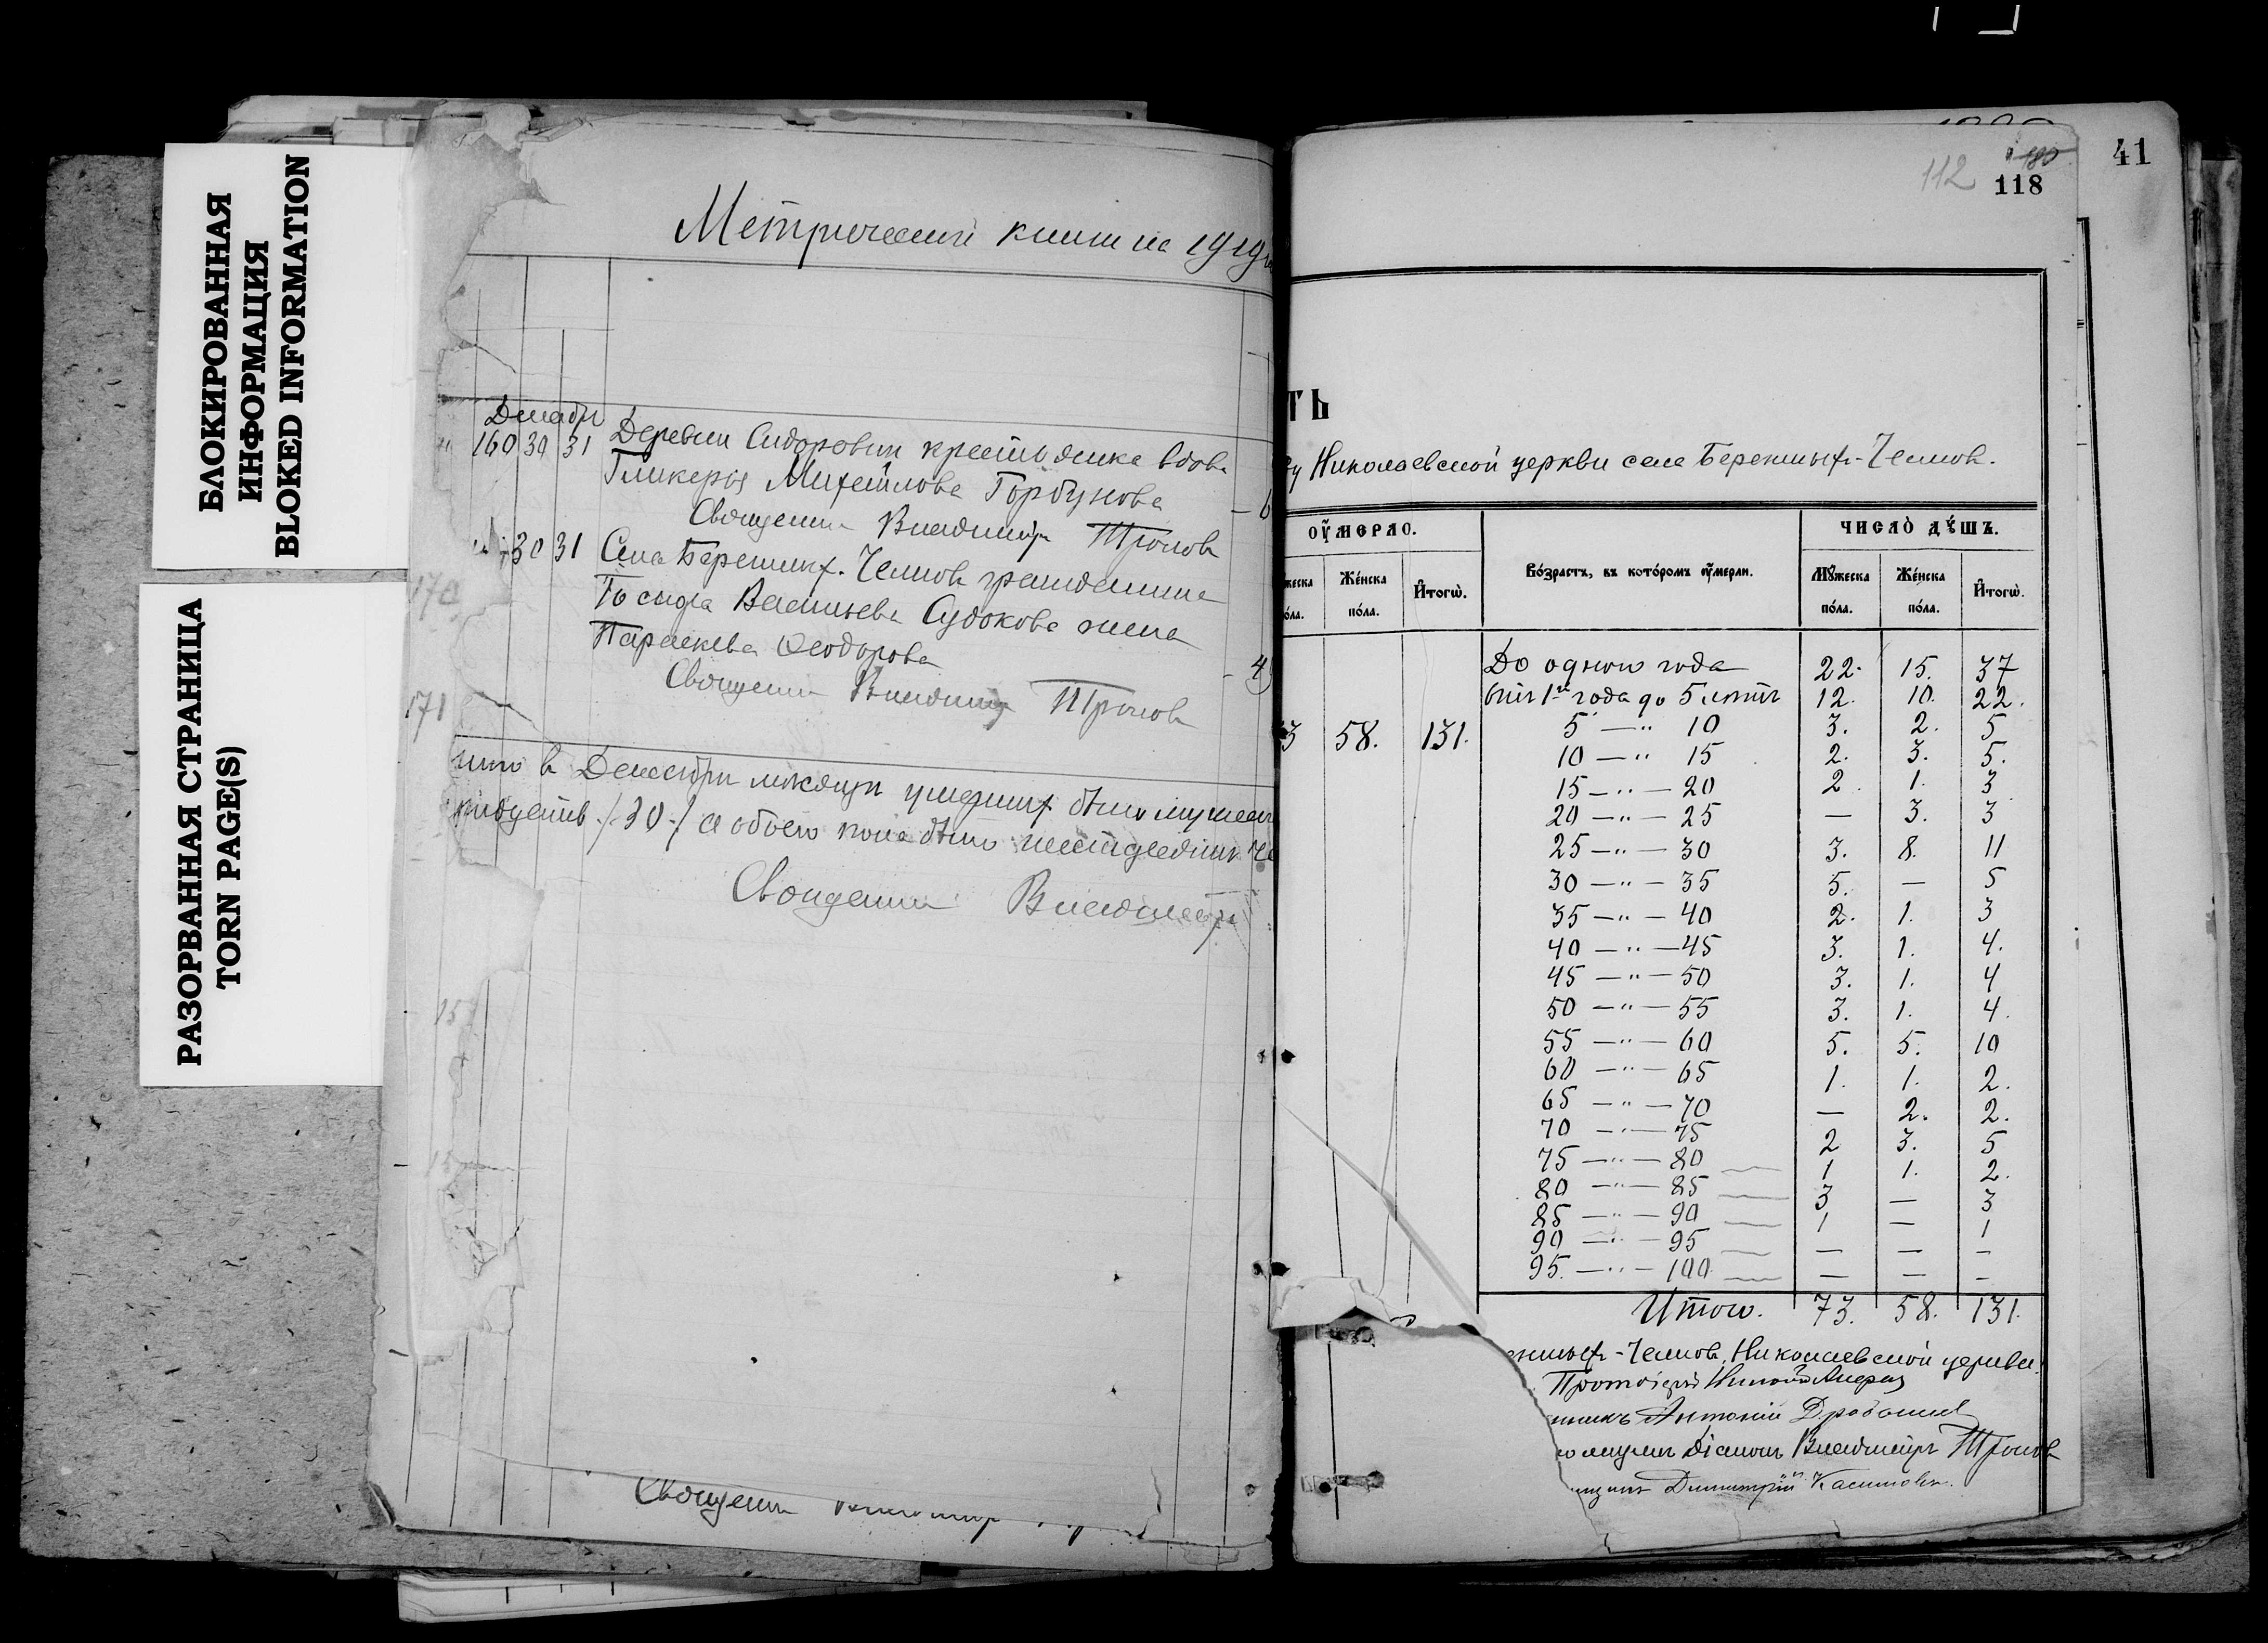 БЛОКИРОВАННАЯ
ИНФОРМАЦИЯ
BLOKED INFORMATION
РАЗОРВАННАЯ СТРАНИЦА
TORN PAGE(S)
Метрической книги на 1919
Декабрь
160 30 31 Деревни Сидоровки крестьянка вдова
Гликерия Михейлова Горбунова
Священник Владимир Тронов
30 31 Села Берешных-Челнов гражданина
Васильева Судокова жена
Параскева Феодорова
Священник Владимир Тронов
170
171
в Декабре месяце умерших было
/30/ а обоего пола было шестьдесят
Священник Владимир
Священник
41
112
180
118
ТЬ
Николаевской церкви села Берешных-Челнов.
ОУМЕРЛО.
Же́нска по́ла.
И҆тогѡ̀.
Во́зрастъ, въ кото́ромъ оу҆́мерли.
ЧИСЛО̀ ДꙊ́ШЪ.
Мꙋ́жеска по́ла.
Же́нска по́ла.
И҆тогѡ̀.
3 58. 131.
До одного года 22. 15. 37
отъ 1го года до 5 лѣтъ 12. 10. 22.
5 — " 10 3. 2. 5
10 — " 15 2. 3. 5.
15 — " — 20 2. 1. 3
20 — " — 25 — 3. 3
25 — " — 30 3. 8. 11
30 — " — 35 5. — 5
35 — " — 40 2. 1. 3
40 — " — 45 3. 1. 4.
45 — " — 50 3. 1. 4
50 — " — 55 3. 1. 4.
55 — " — 60 5. 5. 10
60 — " — 65 1. 1. 2.
65 — " — 70 — 2. 2.
70 — " — 75 2 3. 5
75 — " — 80 1 1. 2.
80 — " — 85 3 — 3
85 — " — 90 1 — 1
90 — " — 95 — — –
95. — " — 100 — — –
Итого. 73. 58. 131.
-Челновъ, Николаевской церкви
Протоіерей
Антоній
діаконъ Владиміръ Троновъ
Димитрій